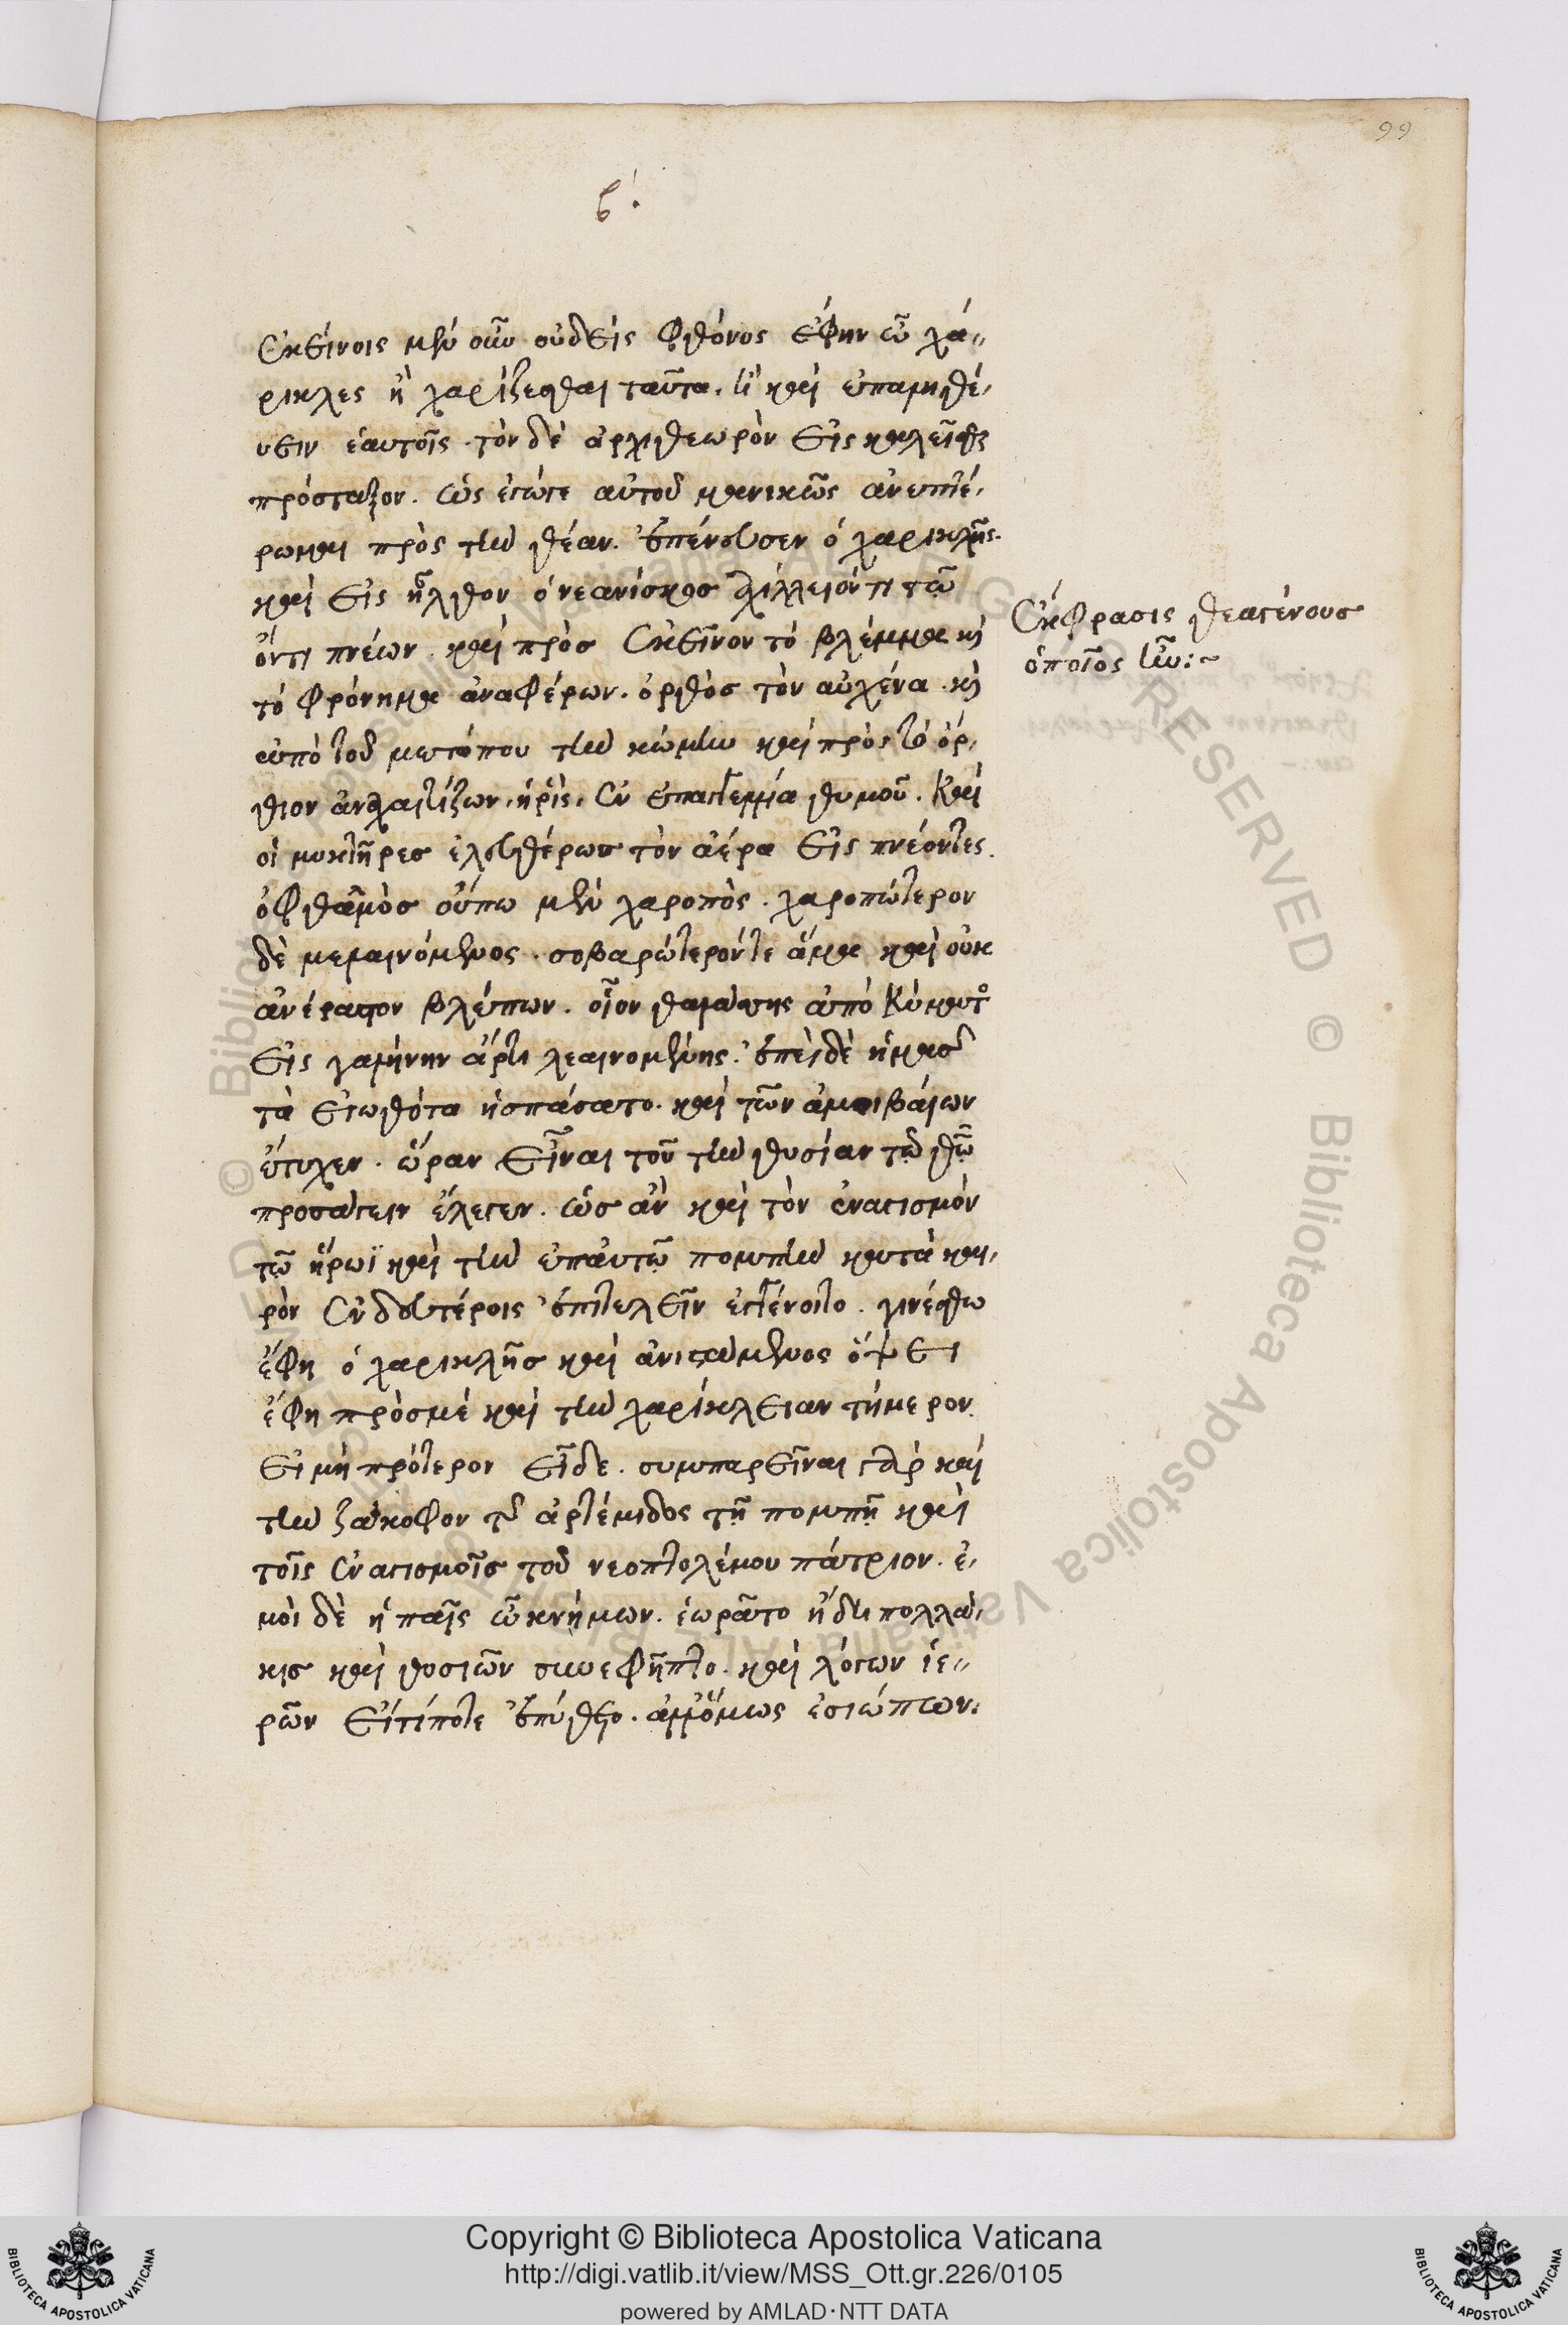 99
β´.
ἐκείνοις μὲν οὖν οὐδεὶς φθόνος ἔφην ὦ χά„
ρικλες ἢ χαρίζεσθαι ταῦτα. ἢ καὶ ἐπαμηθέ,
υειν ἑαυτοῖς. τὸν δὲ ἀρχιθεωρὸν εἰς καλεῖσθαι
πρόσταξον. ὡς ἔγωγε αὐτοῦ μανικῶς ἀνεπτέ,
ρωμαι πρὸς τὴν θέαν. ἐπένευσεν ὁ χαρικλῆς.
καὶ εἰς ἦλθον ὁ νεανίσκος ἀχίλλειόν τι τῷ
ὄντι πνέων. καὶ πρὸς ἐκεῖνον τὸ βλέμμα καὶ
τὸ φρόνημα ἀναφέρων. ὀρθὸς τὸν αὐχένα. καὶ
ἀπὸ τοῦ μετώπου τὴν κόμην καὶ πρὸς τὸ ὄρ,
θιον ἀναχαιτίζων. ἡ ῥὶς, ἐν ἐπαγγελία θυμοῦ. καὶ
οἱ μυκτῆρες ἐλευθέρως τὸν ἀέρα εἰς πνέοντες.
ὀφθαλμὸς οὔπω μὲν χαροπὸς. χαροπώτερον
δὲ μεμαινόμενος. σοβαρώτερόν τε ἅμα καὶ οὐκ
ἀνέραστον βλέπων. οἷον θαλάσσης ἀπὸ κύματος
εἰς γαλήνην ἄρτι λεαινομένης. ἐπεὶ δὲ ἡμᾶς
τὰ εἰωθότα ἠσπάσατο. καὶ τῶν ἀμοιβαίων
ἔτυχεν. ὥραν εἶναι τοῦ τὴν θυσίαν τῷ θεῷ
προσάγειν ἔλεγεν. ὡς ἂν καὶ τὸν ἐναγισμὸν
τῷ ἥρωϊ καὶ τὴν ἐπαυτῷ πομπὴν κατὰ και,
ρὸν ἐν δευτέροις ἐπιτελεῖν ἐγγένοιτο. γινέσθω
ἔφη ὁ χαρικλῆς καὶ ἀνιστάμενος ὄψει
ἔφη πρός με καὶ τὴν χαρίκλειαν τήμερον
εἰ μὴ πρότερον εἶδες. συμπαρεῖναι γὰρ καὶ
τὴν ζάκορον τῆς ἀρτέμιδος τῇ πομπῇ καὶ
τοῖς ἐναγισμοῖς τοῦ νεοπτολέμου πάτριον. ἐ,
μοὶ δὲ ἡ παῖς ὦ κνήμων. ἑωρᾶτο ἤδη πολλά,
κις καὶ θυσιῶν συνεφῆπτο. καὶ λόγων ἱε„
ρῶν εἴ τί ποτε ἐπύθετο. ἀλλ' ὅμως ἐσιώπων.
ἔκφρασις θεαγένους
ὁποῖος ἦν:~
Copyright © Biblioteca Apostolica Vaticana
http://digi.vatlib.it/view/MSS_Ott.gr.226/0105
powered by AMLAD·NTT DATA